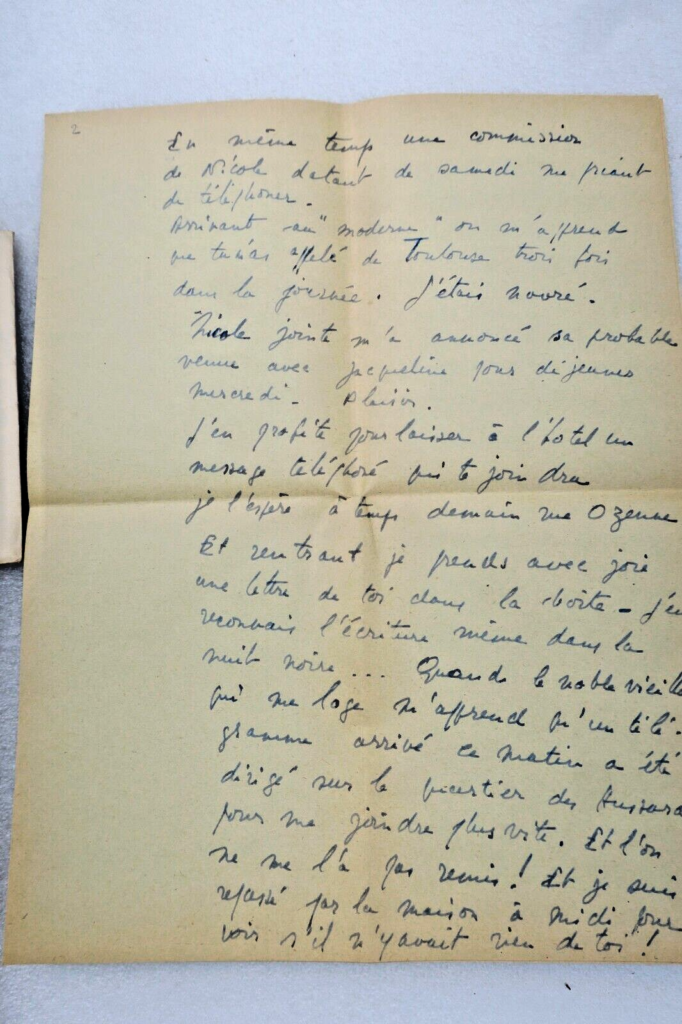 2
En même temps une commission
de Nicole datant de samedi me priant
de téléphoner.
Arrivant au "moderne" on m'apprend
que tu m'as appelé de Toulouse trois fois
dans la journée. J'étais navré.
Nicole jointe m'a annoncé sa probable
venue avec Jacqueline pour déjeuner
mercredi - Plaisir.
J'en profite pour laisser à l'hotel un
message téléphoné qui te joindra
je l'espère à temps demain rue Ozenne
Et rentrant je prends avec joie
une lettre de toi dans la boîte - J'en
reconnais l'écriture même dans la
nuit noire... Quand la noble vieille
qui me loge m'apprend qu'un télé-
gramme arrivé ce matin a été
dirigé sur le quartier des Hussards
pour me joindre plus vite. Et l'on
ne me l'a pas remis! Et je suis
repassé par la maison à midi pour
voir s'il n'y avait rien de toi!